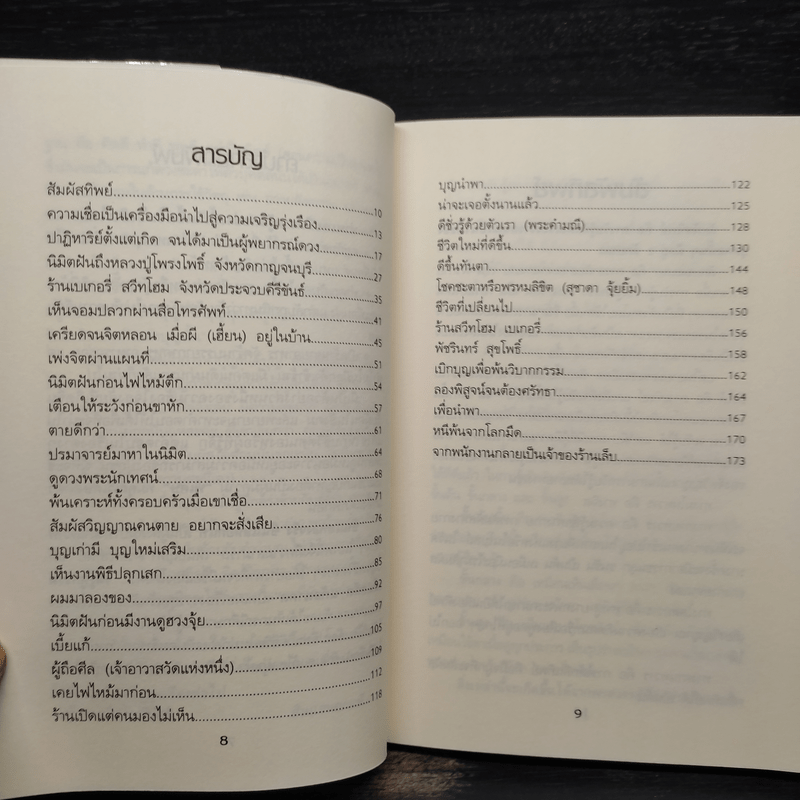 สารบัญ
สัมผัสทิพย์ 10
ความเชื่อเป็นเครื่องมือนำไปสู่ความเจริญรุ่งเรือง 13
ปาฏิหาริย์ตั้งแต่เกิด จนได้มาเป็นผู้พยากรณ์ดวง 17
นิมิตฝันถึงหลวงปู่โพรงโพธิ์ จังหวัดกาญจนบุรี 27
ร้านเบเกอรี่ สวีทโฮม จังหวัดประจวบคีรีขันธ์ 35
เห็นจอมปลวกผ่านสื่อโทรศัพท์ 41
เครียดจนจิตหลอน เมื่อผี (เฮี้ยน) อยู่ในบ้าน 45
เพ่งจิตผ่านแผนที่ 51
นิมิตฝันก่อนไฟไหม้ตึก 54
เตือนให้ระวังก่อนขาหัก 57
ตายดีกว่า 61
ปรมาจารย์มาหาในนิมิต 64
ดูดวงพระนักเทศน์ 68
พ้นเคราะห์ทั้งครอบครัวเมื่อเขาเชื่อ 71
สัมผัสวิญญาณคนตาย อยากจะสั่งเสีย 76
บุญเก่ามี บุญใหม่เสริม 80
เห็นงานพิธีปลุกเสก 85
ผมมาลองของ 92
นิมิตฝันก่อนมีงานดูฮวงจุ้ย 97
เบี้ยแก้ 105
ผู้ถือศีล (เจ้าอาวาสวัดแห่งหนึ่ง) 109
เคยไฟไหม้มาก่อน 112
ร้านเปิดแต่คนมองไม่เห็น 118
8
บุญนำพา 122
น่าจะเจอตั้งนานแล้ว 125
ดีชั่วรู้ด้วยตัวเรา (พระคำมณี) 128
ชีวิตใหม่ที่ดีขึ้น 130
ดีขึ้นทันตา 144
โชคชะตาหรือพรหมลิขิต (สุชาดา จุ้ยยิ้ม) 148
ชีวิตที่เปลี่ยนไป 150
ร้านสวีทโฮม เบเกอรี่ 156
พัชรินทร์ สุขโพธิ์ 158
เบิกบุญเพื่อพ้นวิบากกรรม 162
ลองพิสูจน์จนต้องศรัทธา 164
เพื่อนำพา 167
หนีพ้นจากโลกมืด 170
จากพนักงานกลายเป็นเจ้าของร้านเล็บ 173
9